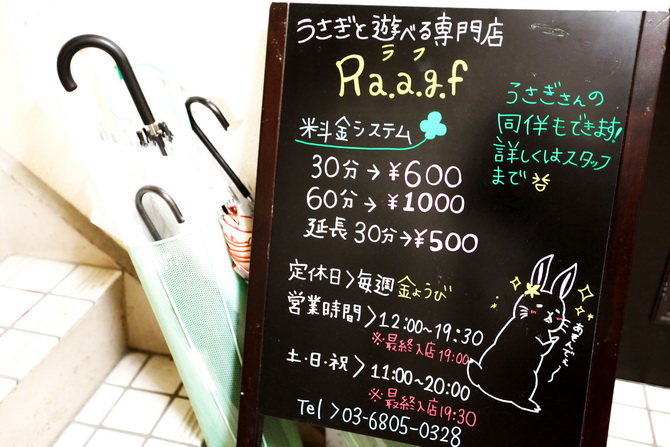 うさぎと遊べる専門店
ラフ
Ra.a.g.f
うさぎさんの
同伴もできます!
詳しくはスタッフ
まで
料金システム
30分→¥600
60分→¥1000
延長30分→¥500
定休日>毎週金ようび
営業時間>12:00~19:30
※最終入店19:00
土・日・祝>11:00~20:00
※最終入店19:30
Tel>03-6805-0328
あそんでよ〜